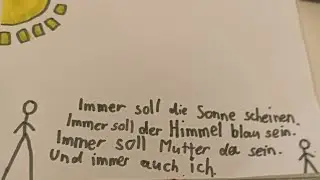 Immer soll die Sonne scheinen.
Immer soll der Himmel blau sein.
Immer soll Mutter da sein.
Und immer auch ich.